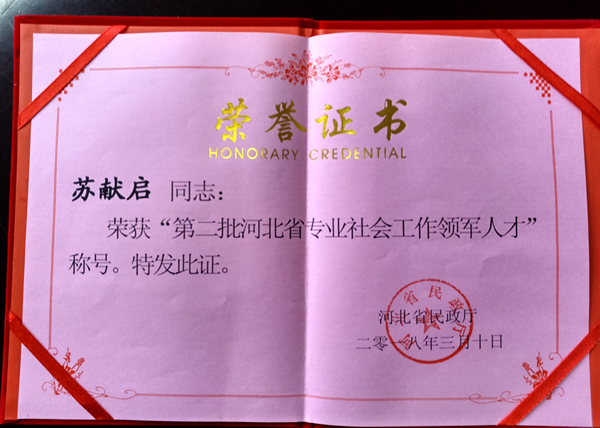 荣誉证书
HONORARY CREDENTIAL
苏献启 同志：
荣获“第二批河北省专业社会工作领军人才”
称号。特发此证。
河北省民政厅
二零一八年三月十日